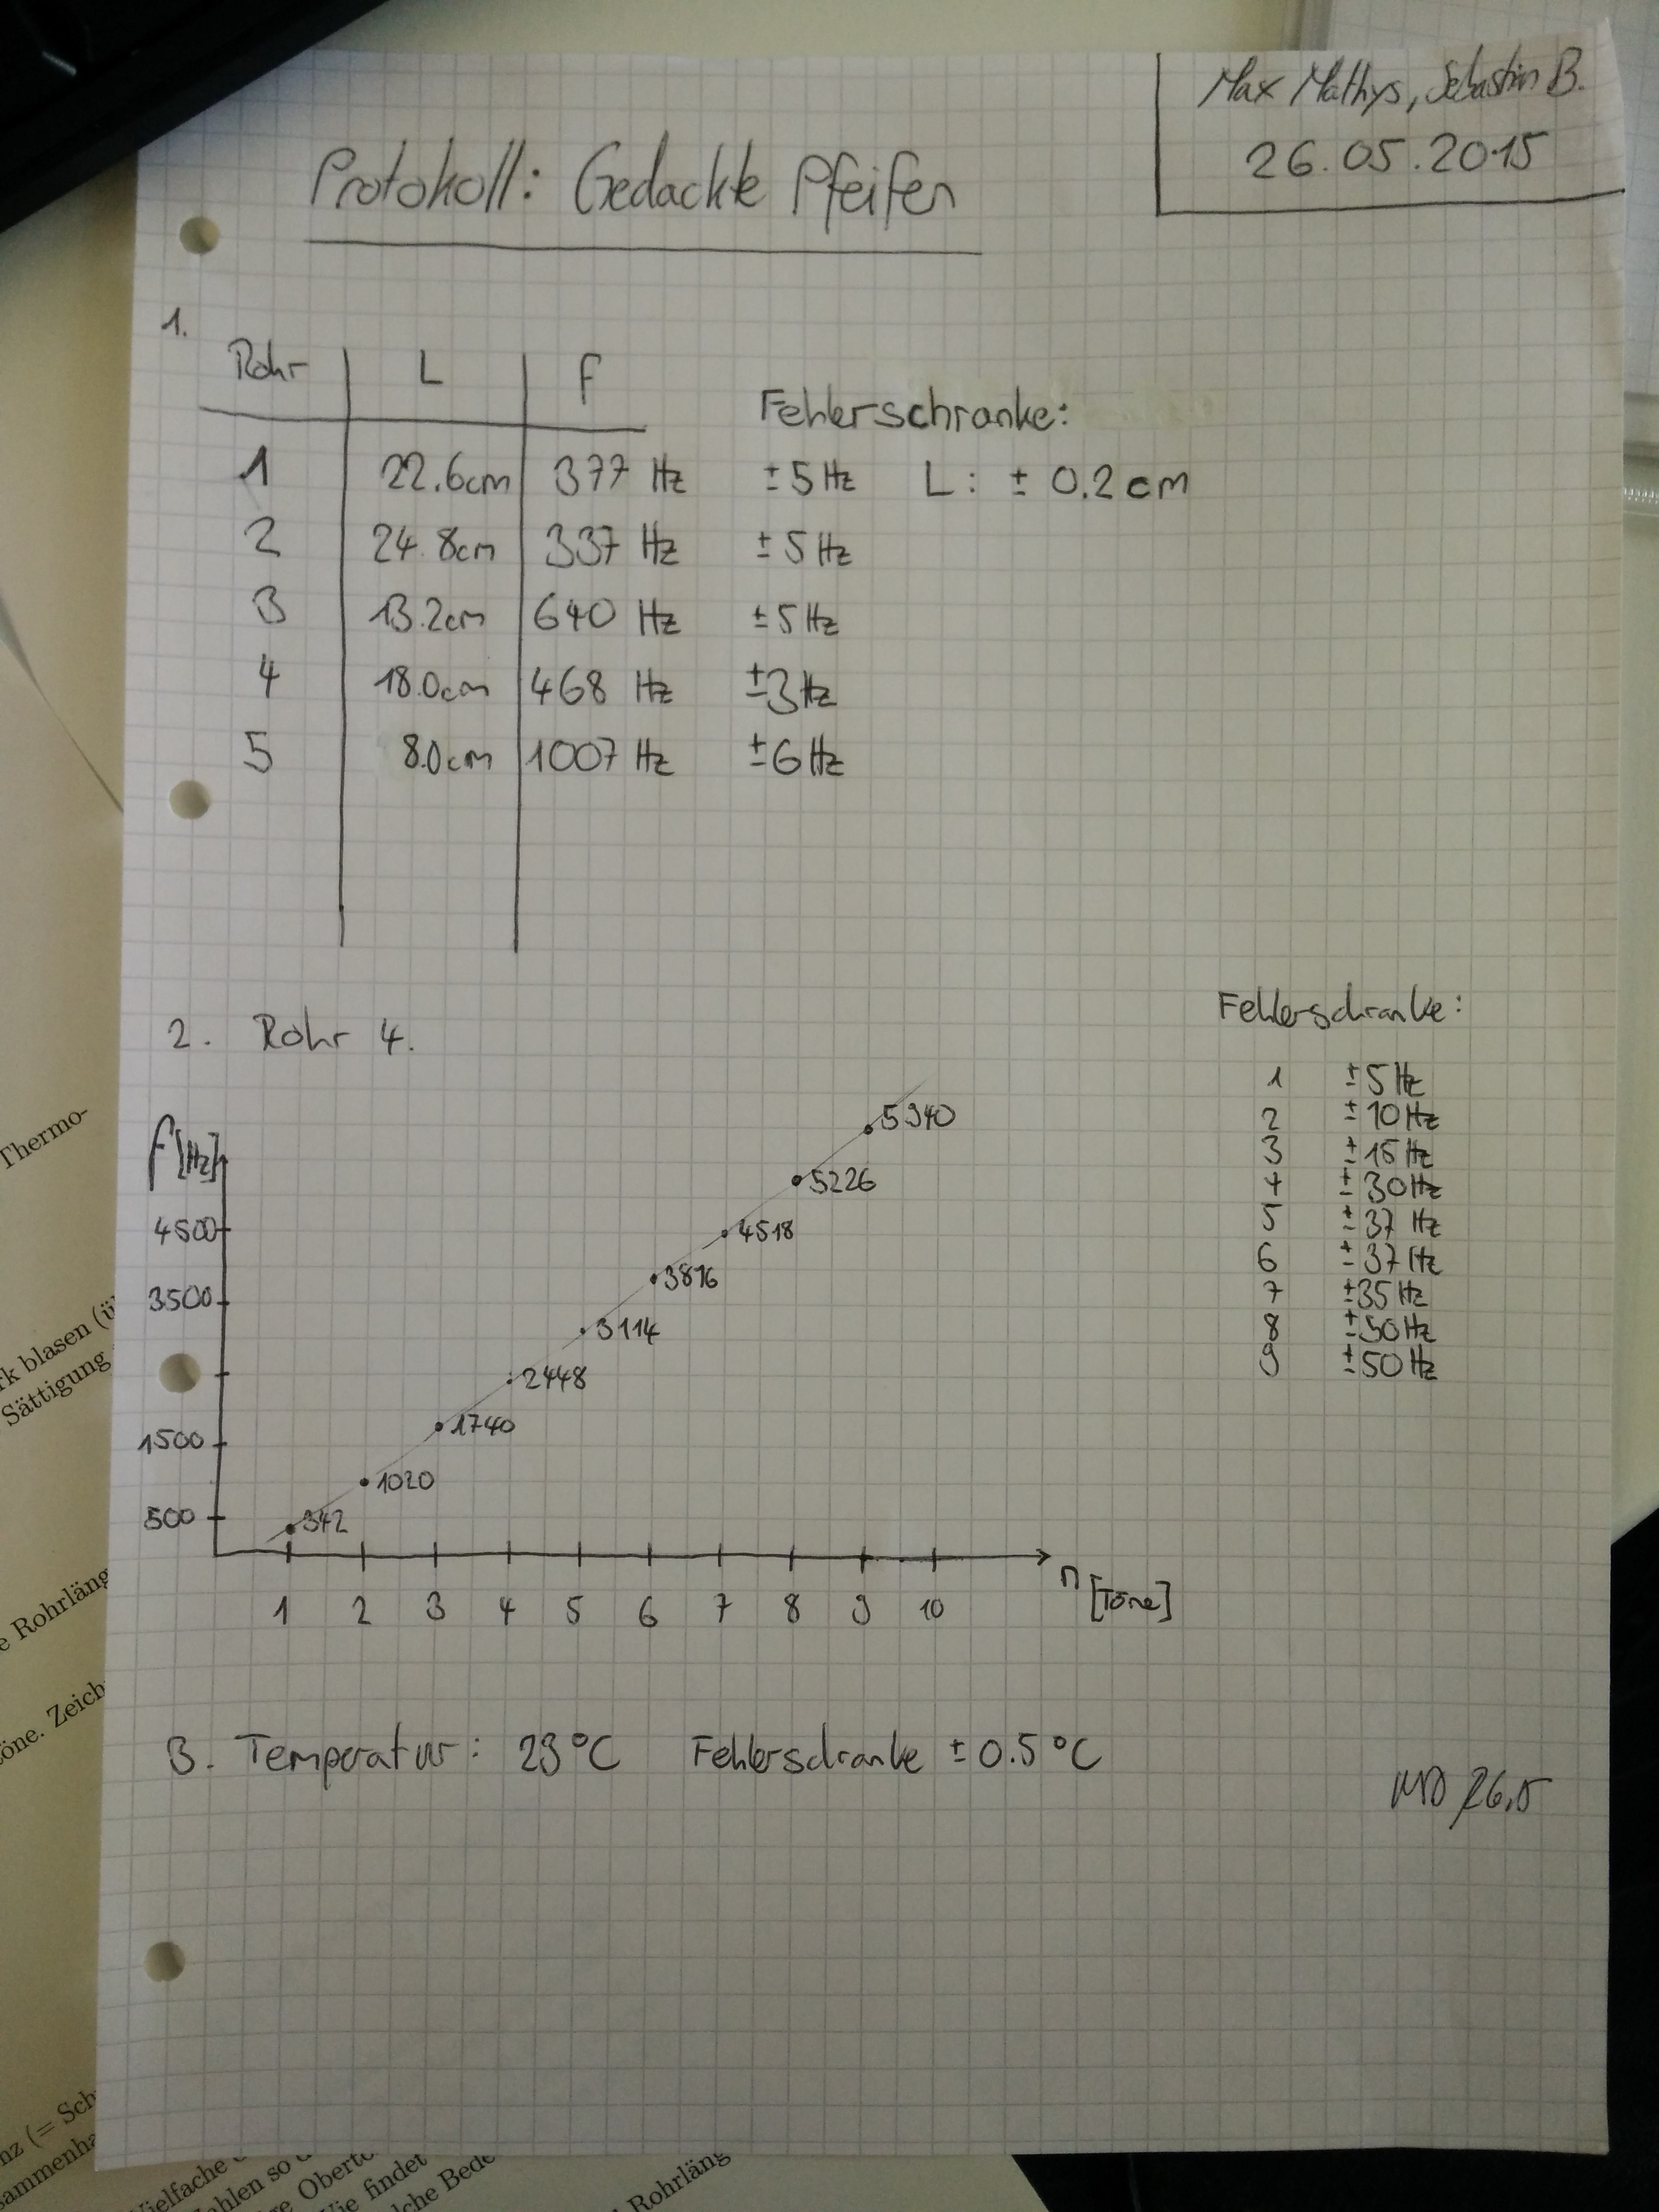 Max Mathys, Sebastin B.
26.05.2015
Protokoll: Gedackte Pfeifen
1.
Rohr L f Fehlerschranke:
1 22.6cm 377 Hz ±5Hz L: ± 0.2cm
2 24.8cm 337 Hz ±5Hz
3 13.2cm 640 Hz ±5Hz
4 18.0cm 468 Hz ±3Hz
5 8.0cm 1007 Hz ±6Hz
2. Rohr 4.
f[Hz]
4500
3500
1500
500
342
1020
1740
2448
3114
3816
4518
5226
5940
1 2 3 4 5 6 7 8 9 10
n [Töne]
Fehlerschranke:
1 ±5Hz
2 ±10Hz
3 ±15Hz
4 ±30Hz
5 ±37Hz
6 ±37Hz
7 ±35Hz
8 ±50Hz
9 ±50Hz
3. Temperatur: 23°C Fehlerschranke ±0.5°C
Thermo-
rk blasen (ü
Sättigung
e Rohrläng
öne. Zeich
nz (= Sch
sammenha
ielfache
ahlen so
re Oberto
Wie findet
lche Bede
Rohrläng